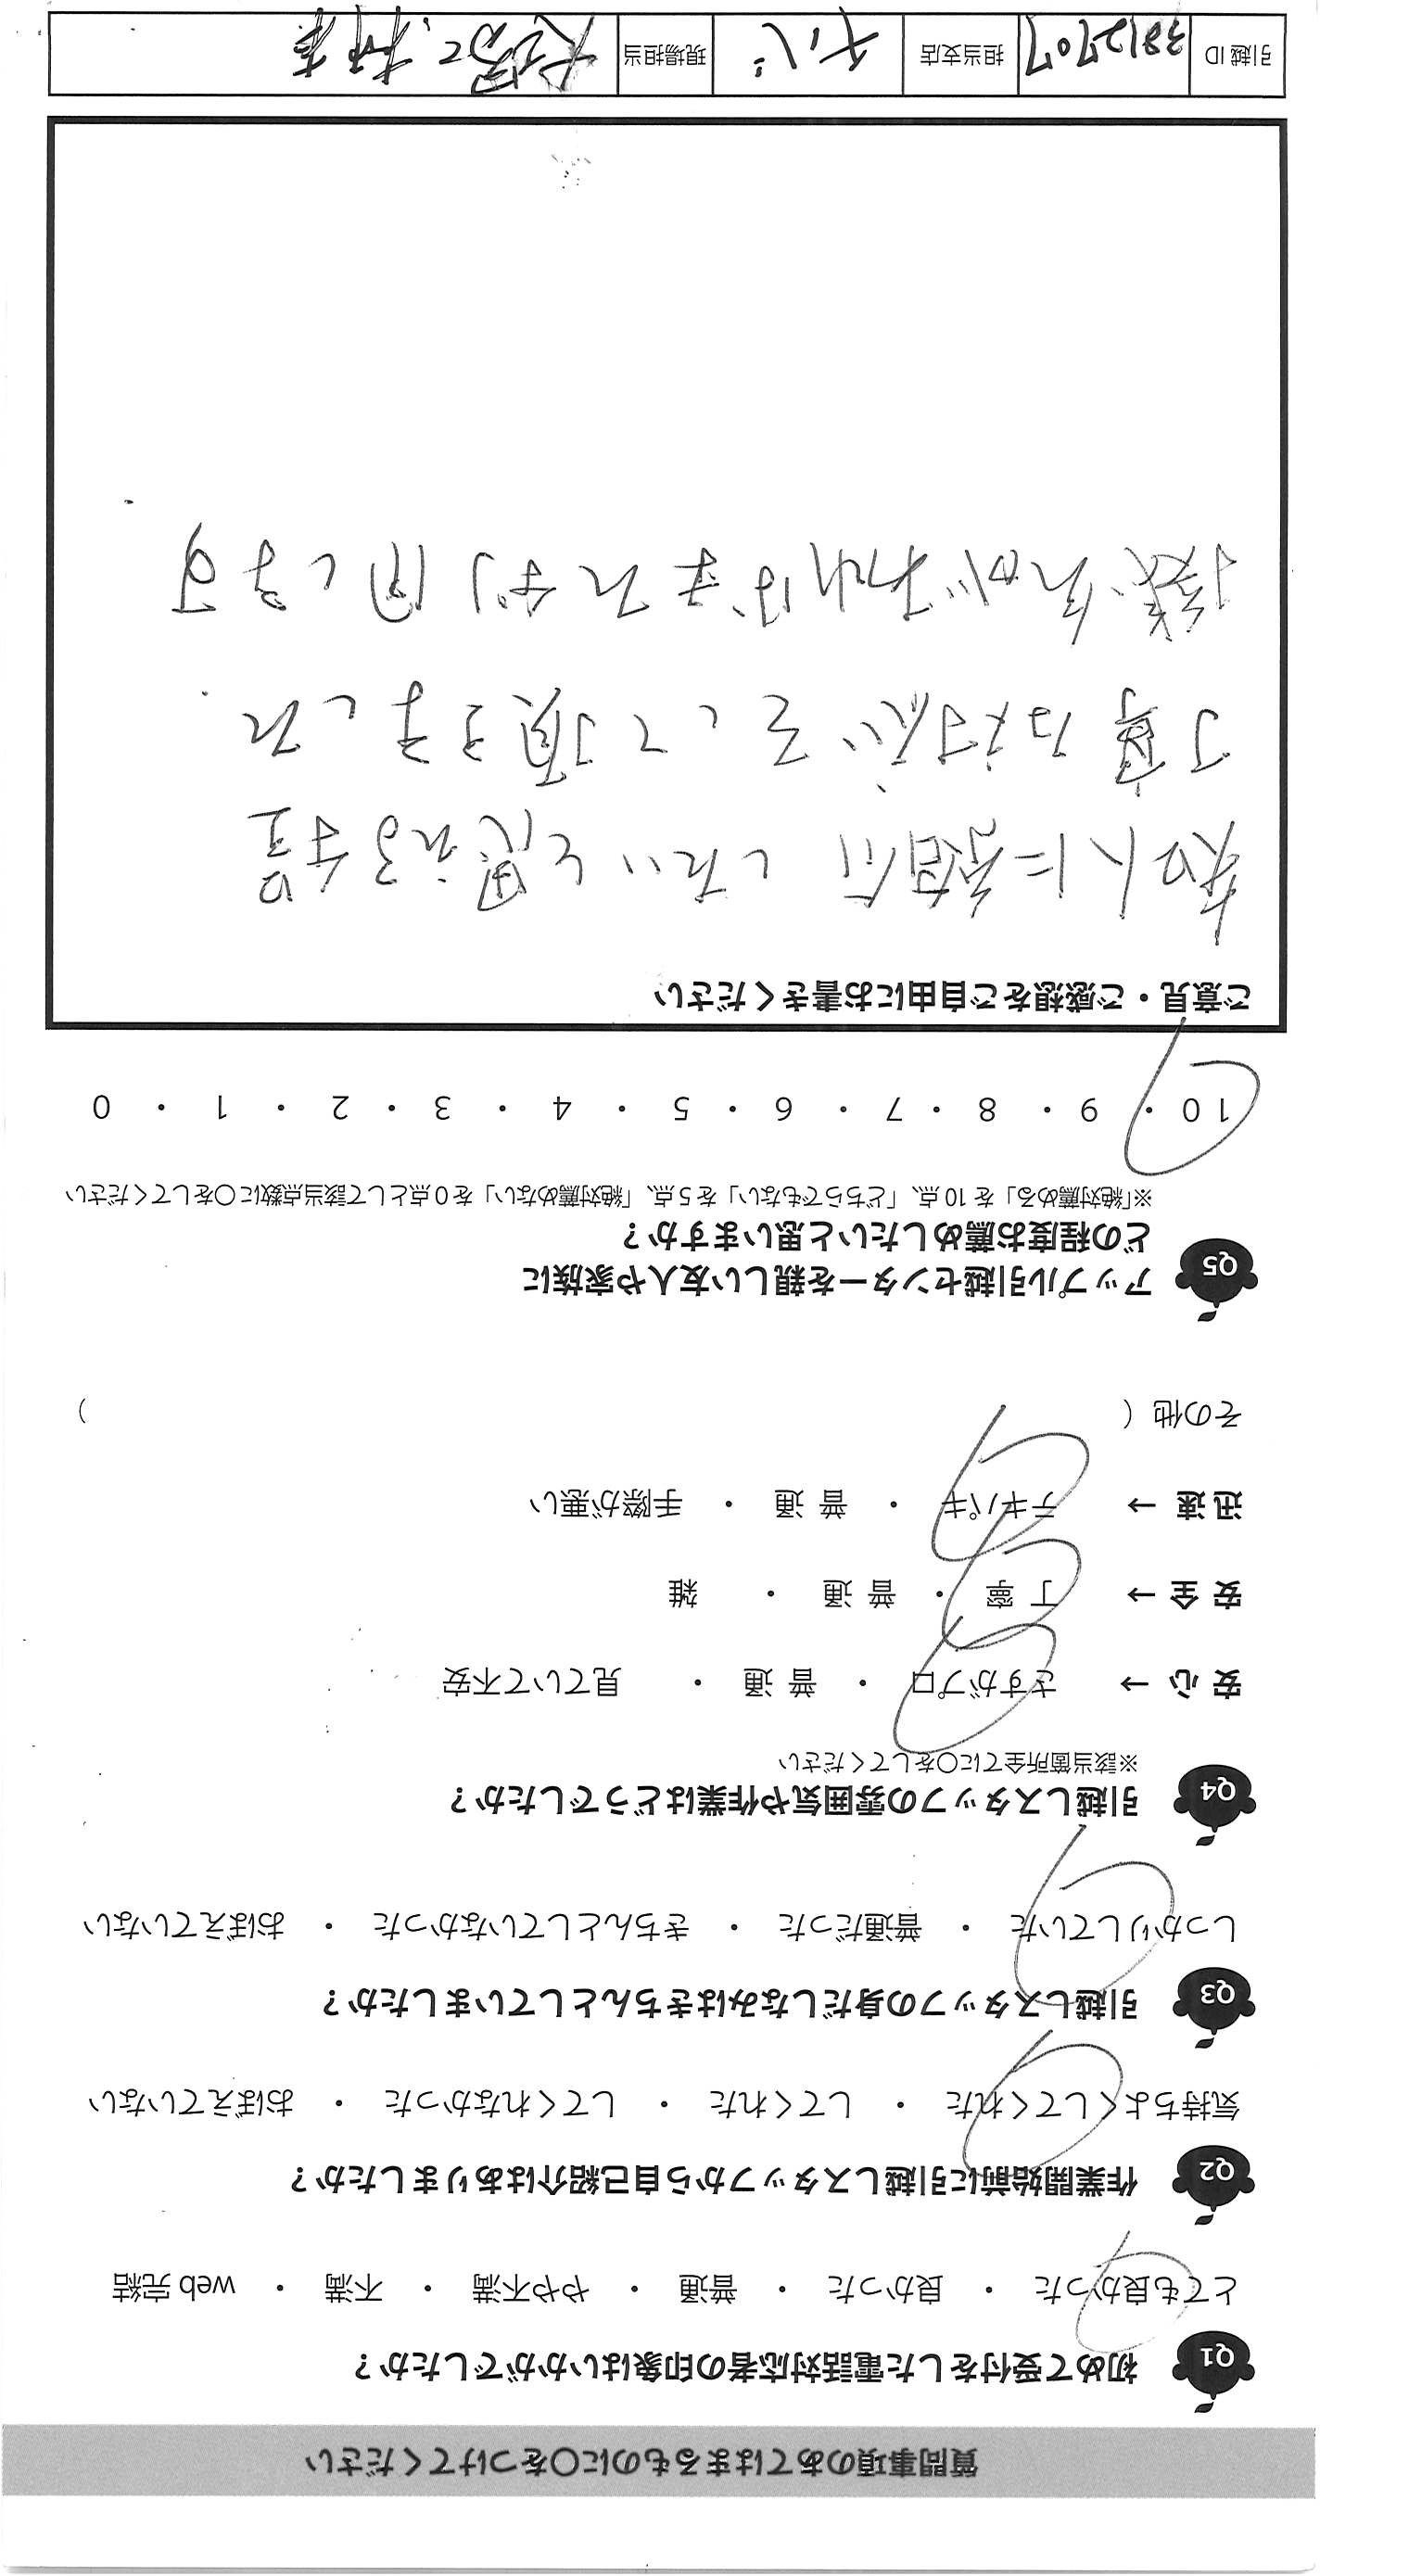 質問事項のあてはまるものに〇をつけてください
Q1 初めて受付をした電話対応者の印象はいかがでしたか？
とても良かった ・ 良かった ・ 普通 ・ やや不満 ・ 不満 ・ web 完結
Q2 作業開始前に引越しスタッフから自己紹介はありましたか？
気持ちよくしてくれた ・ してくれた ・ してくれなかった ・ おぼえていない
Q3 引越しスタッフの身だしなみはきちんとしていましたか？
しっかりしていた ・ 普通だった ・ きちんとしていなかった ・ おぼえていない
Q4 引越しスタッフの雰囲気や作業はどうでしたか？
※該当箇所全てに〇をしてください
安 心 → さすがプロ ・ 普 通 ・ 見ていて不安
安 全 → 丁 寧 ・ 普 通 ・ 雑
迅 速 → テキパキ ・ 普 通 ・ 手際が悪い
その他（ ）
Q5 アップル引越センターを親しい友人や家族に
どの程度お薦めしたいと思いますか？
※「絶対薦める」を 10 点、「どちらでもない」を 5 点、「絶対薦めない」を 0 点として該当点数に〇をしてください
10 ・ 9 ・ 8 ・ 7 ・ 6 ・ 5 ・ 4 ・ 3 ・ 2 ・ 1 ・ 0
ご意見・ご感想をご自由にお書きください
知人に紹介したいと思える程
丁寧な対応をして頂きました.
機会があればまた利用します.
引越 ID 3812707 担当支店 チバ 現場担当 大場